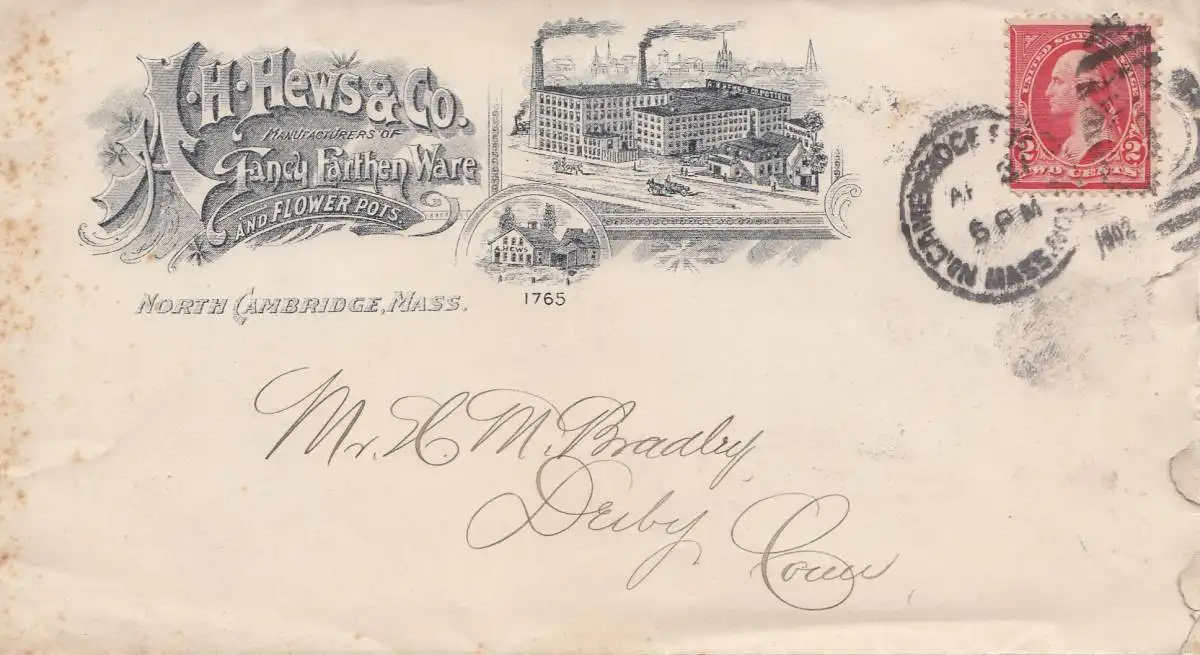 A. H. Hews & Co.
Manufacturers of
Fancy Earthen Ware
and Flower Pots.
North Cambridge, Mass.
A. HEWS
1765
UNITED STATES
2 2
TWO CENTS
NO. CAMBRIDGE
6 PM
MASS.
1902
Mr. H. M. Bradley,
Derby,
Conn